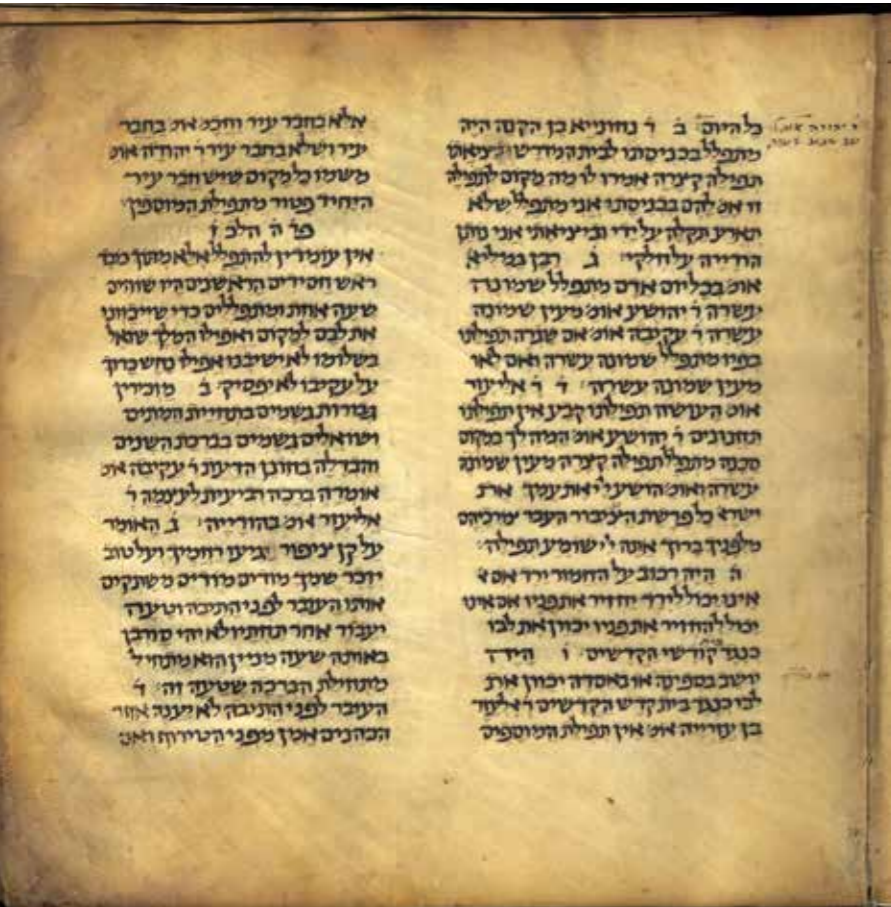 כל היום ב ר נחונייא בן הקנה היה
מתפלל בכניסתו לבית המודרש וביציאתו
תפילה קיצרה אמרו לו מה מקום לתפילה
זו אמ' להם בכניסתי אני מתפלל שלא
תארע תקלה על ידי וביציאתי אני נותן
הודייה על חלקי ג רבן גמליא
אומ' בכל יום אדם מתפלל שמונה
עשרה ר יהושע אומ' מעין שמונה
עשרה ר עקיבה אומ' אם שגרה תפילתו
בפיו מתפלל שמונה עשרה ואם לאו
מעין שמונה עשרה ד ר אליעזר
אומ' העושה תפילתו קבע אין תפילתו
תחנונים ר יהושע אומ' המהלך במקום
סכנה מתפלל תפילה קיצרה מעין שמונה
עשרה ואומ' הושע יי את עמך את
ישרא כל פרשת העיבור העבר צורכיהם
מלפניך ברוך אתה יי שומע תפילה
ה היה רכוב על החמור ירד אם
אינו יכול לירד יחזיר את פניו אם אינו
יכול להחזיר את פניו יכוון את לבו
כנגד קודשי הקדשים ו היה
יושב בספינה או באסדה יכוון את
לבו כנגד בית קדש הקדשים ר אלעזר
בן עזרייה אומ' אין תפילת המוספים
אלא בחבר עיר וחכמ' אומ' בחבר
עיר ושלא בחבר עיר ר יהודה אומ'
משמו כל מקום שיש חבר עיר
היחיד פטור מתפילת המוספין
פר ה הלכ ז
אין עומדין להתפלל אלא מתוך כובד
ראש חסידים הראשנים היו שוהים
שעה אחת ומתפללים כדי שייכוונו
את לבם למקום ואפילו המלך שואל
בשלומו לא ישיבנו אפילו נחש כרוך
על עקיבו לא יפסיק ב מזכירין
גבורות גשמים בתחיית המתים
ושואלים גשמים בברכת השנים
והבדלה בחונן הדעת ר עקיבה אומ'
אומרה ברכה רביעית לעצמה ר
אליעזר אומ' בהודייה ג האומר
על קן ציפור יגיעו רחמיך ועל טוב
יזכר שמך מודים מודים משתקים
אותו העובר לפני התיבה וטעה
יעבור אחר תחתיו לא יהי סורבן
באותה שעה מניין הוא מתחיל
מתחילת הברכה שטעה זה ד
העובר לפני התיבה לא יענה אחר
הכהנים אמן מפני הטירוף ואם